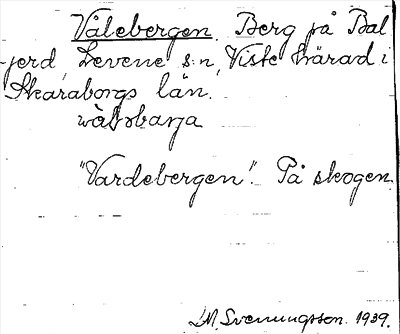 Vålebergen. Berg på Bal
jerd, Levene s:n, Viste härad i
Skaraborgs län.

"Vardebergen". På skogen
S.M. Svenungsson. 1939.